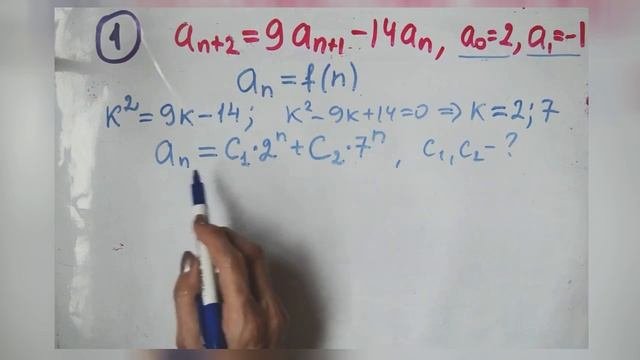 1 aₙ₊₂=9aₙ₊₁-14aₙ, a₀=2, a₁=-1
aₙ=f(n)
k²=9k-14; k²-9k+14=0 ⇒ k=2;7
aₙ=C₁·2ⁿ+C₂·7ⁿ, C₁,C₂-?